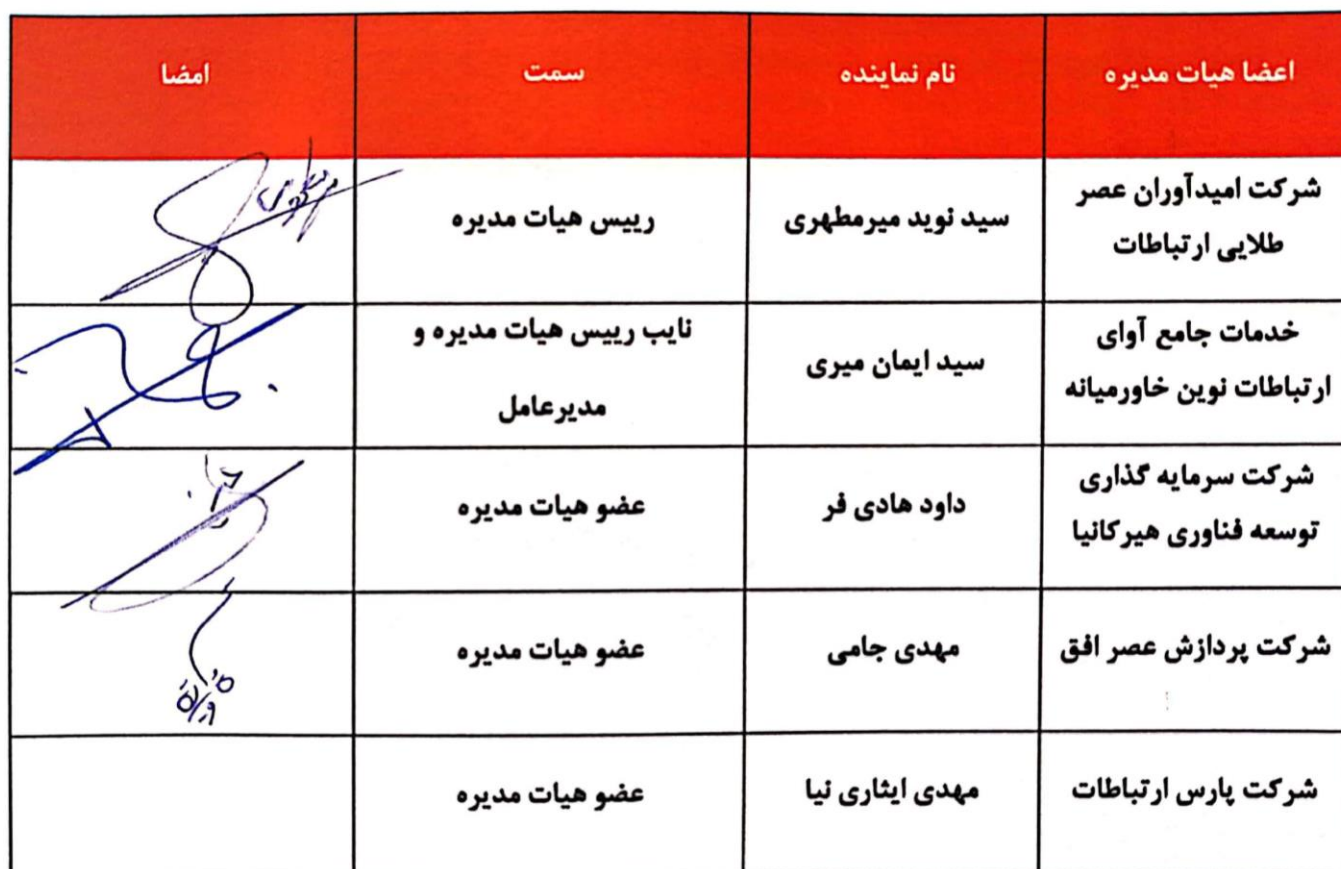 اعضا هیات مدیره
نام نماینده
سمت
امضا
شرکت امیدآوران عصر
طلایی ارتباطات
سید نوید میرمطهری
رییس هیات مدیره
خدمات جامع آوای
ارتباطات نوین خاورمیانه
سید ایمان میری
نایب رییس هیات مدیره و
مدیرعامل
شرکت سرمایه گذاری
توسعه فناوری هیرکانیا
داود هادی فر
عضو هیات مدیره
شرکت پردازش عصر افق
مهدی جامی
عضو هیات مدیره
شرکت پارس ارتباطات
مهدی ایثاری نیا
عضو هیات مدیره